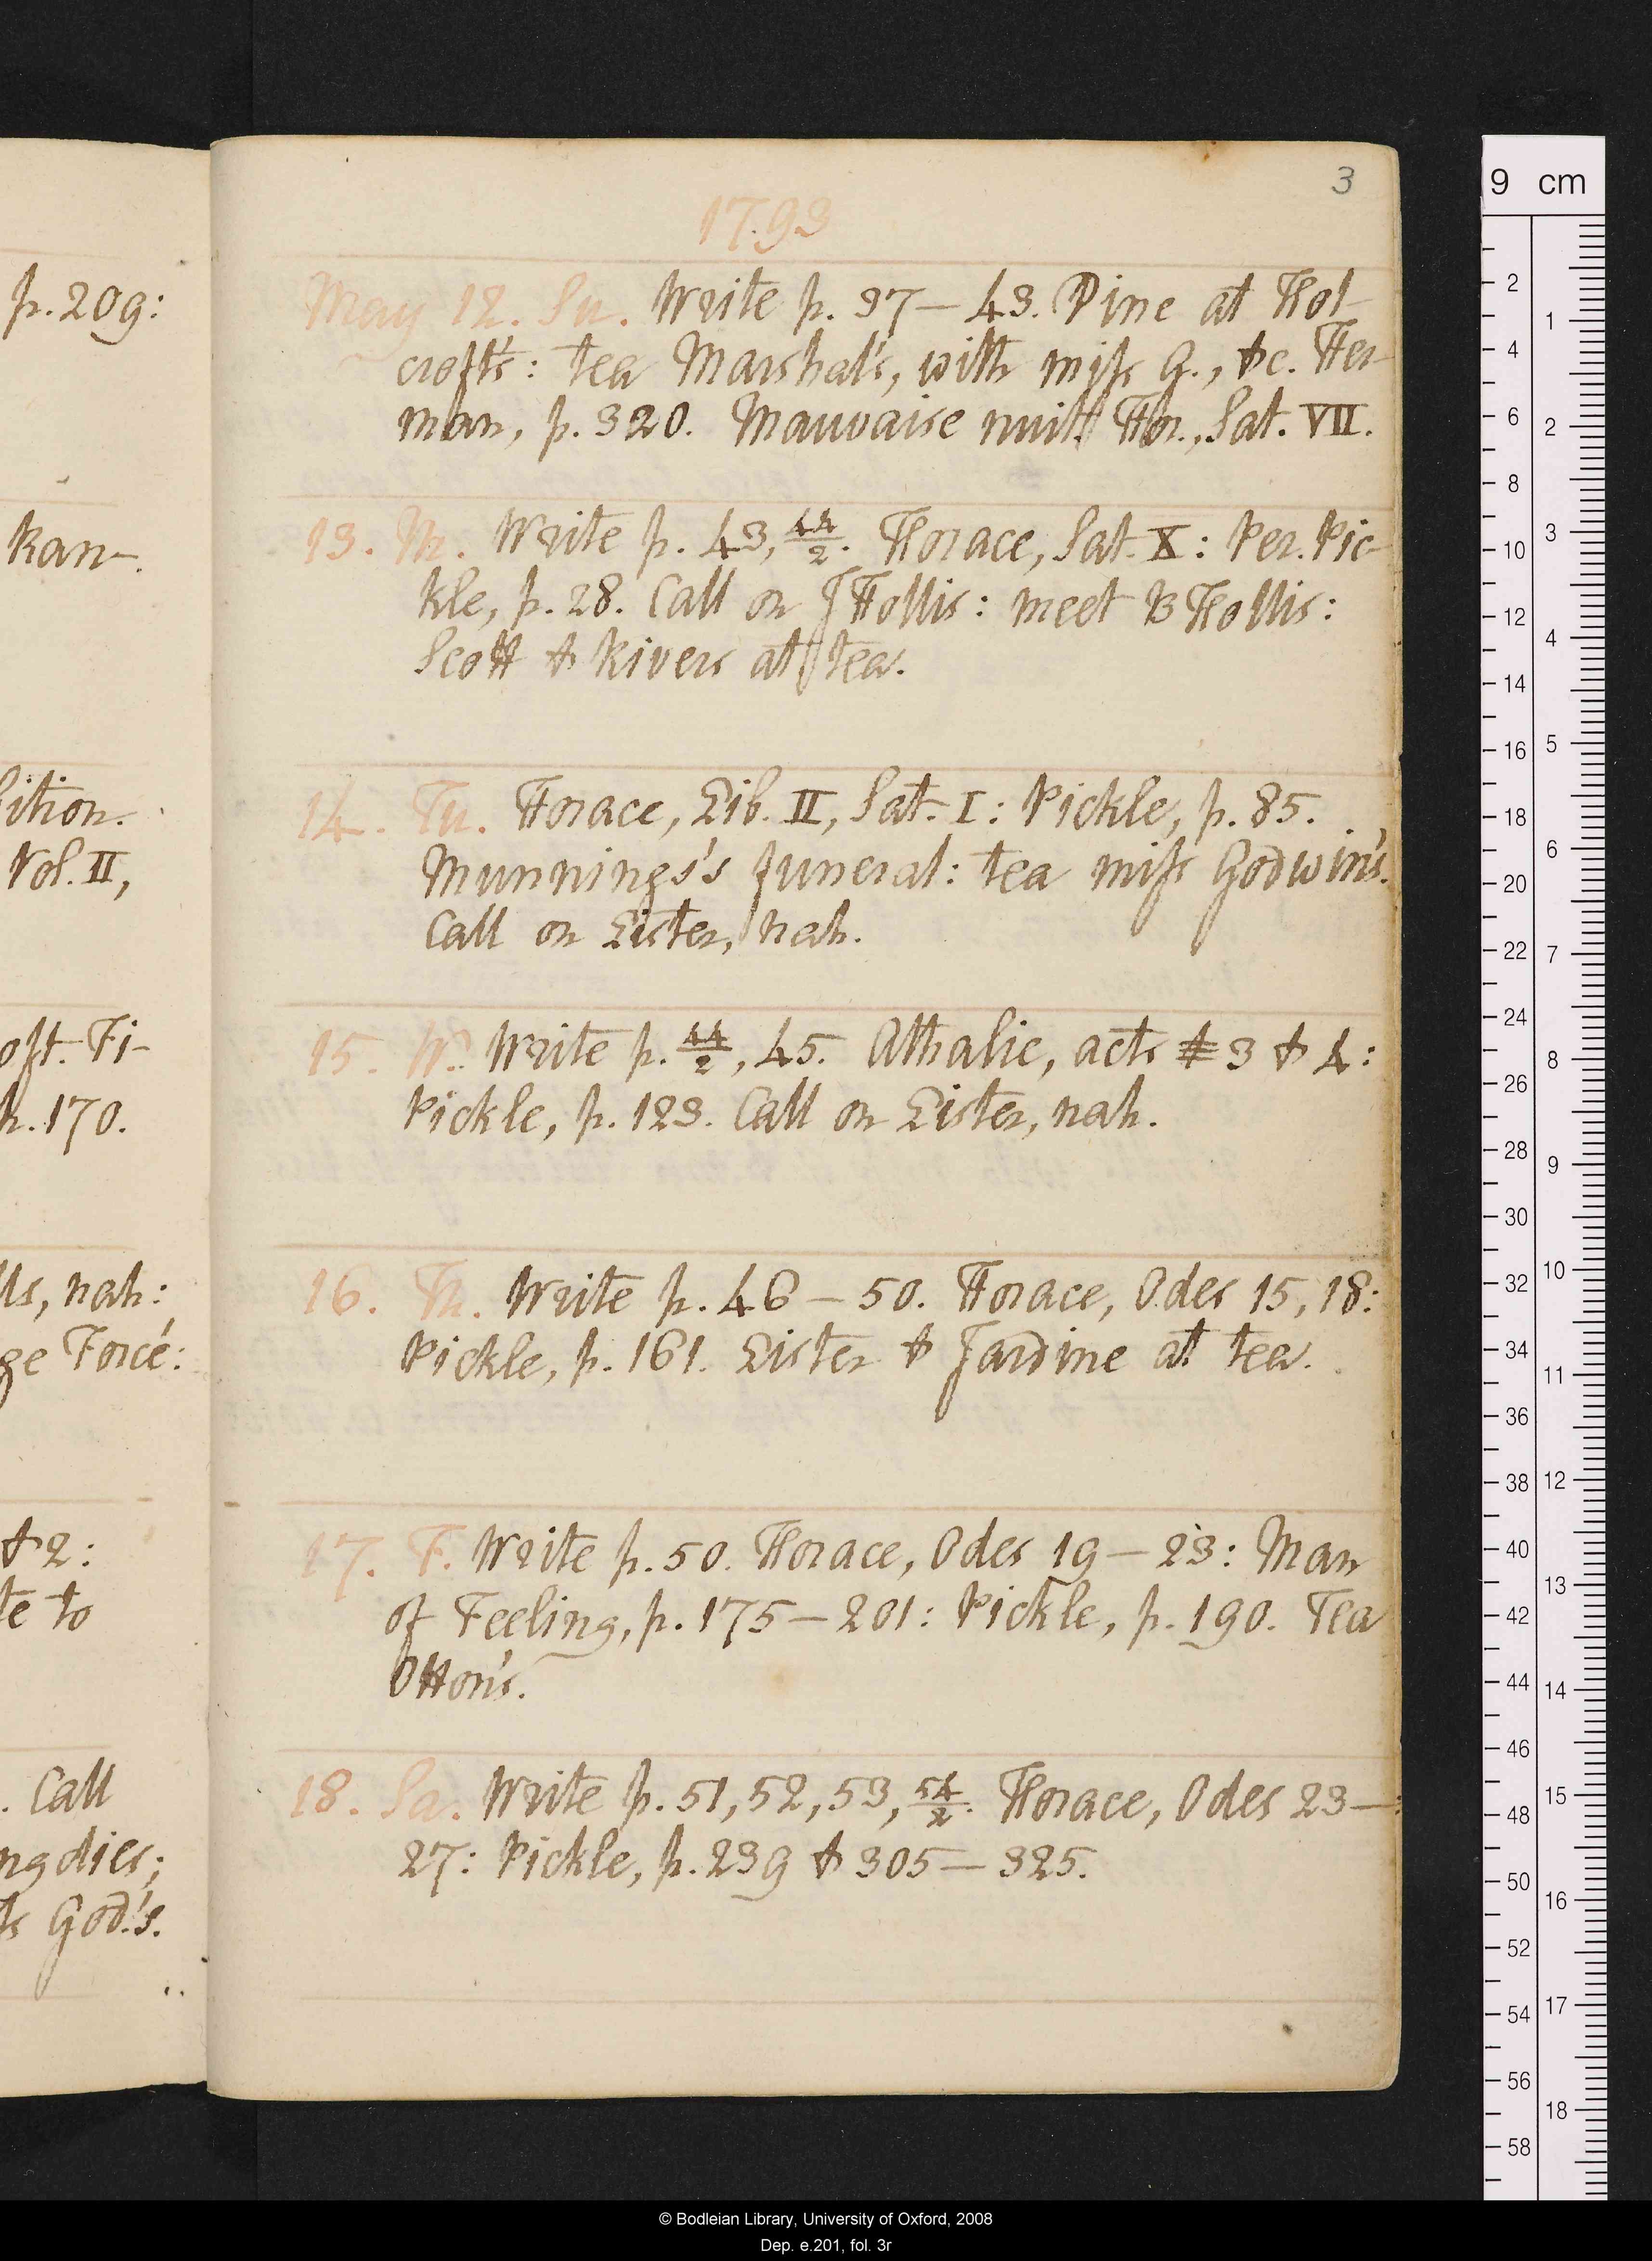 p. 209:
Ran-
ition.
Vol. II,
oft. Fi-
p. 170.
lls, nah:
ge Force:
& 2:
te to
. Call
ng dies;
God.'s.
3
1793
May 12. Su. Write p. 37–43. Dine at Hol-
croft's: tea Marshal's, with miss G., &c. Her-
man, p. 320. Mauvaise nuit. Hor., Sat. VII.
13. M. Write p. 43, 44/2. Horace, Sat. X: Per. Pic-
kle, p. 28. Call on J Hollis: meet B Hollis:
Scott & Rivers at tea.
14. Tu. Horace, Lib. II, Sat. I: Pickle, p. 85.
Munnings's funeral: tea miss Godwin's.
Call on Lister, nah.
15. W. Write p. 44/2, 45. Athalie, acts 3 & 4:
Pickle, p. 123. Call on Lister, nah.
16. Th. Write p. 46–50. Horace, Odes 15, 18:
Pickle, p. 161. Lister & Jardine at tea.
17. F. Write p. 50. Horace, Odes 19–23: Man
of Feeling, p. 175–201: Pickle, p. 190. Tea
Otton's.
18. Sa. Write p. 51, 52, 53, 54/2. Horace, Odes 23–
27: Pickle, p. 239 & 305–325.
9 cm
2
4
6
8
10
12
14
16
18
20
22
24
26
28
30
32
34
36
38
40
42
44
46
48
50
52
54
56
58
1
2
3
4
5
6
7
8
9
10
11
12
13
14
15
16
17
18
© Bodleian Library, University of Oxford, 2008
Dep. e.201, fol. 3r